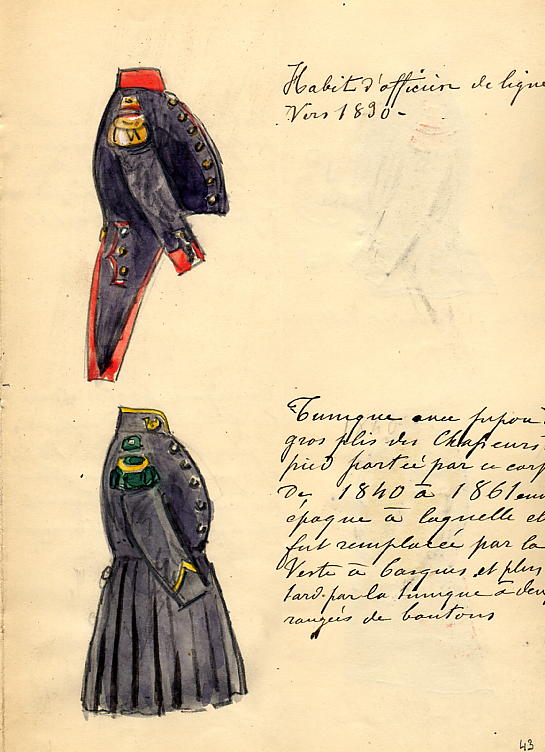 Habit d'officier de ligne
Vers 1830-
Tunique avec jupon à
gros plis des Chasseurs
pied portée par ce corps
De 1840 à 1861 env
époque à laquelle el
fut remplacée par la
Veste à basques et plus
tard par la tunique à deux
rangées de boutons
43